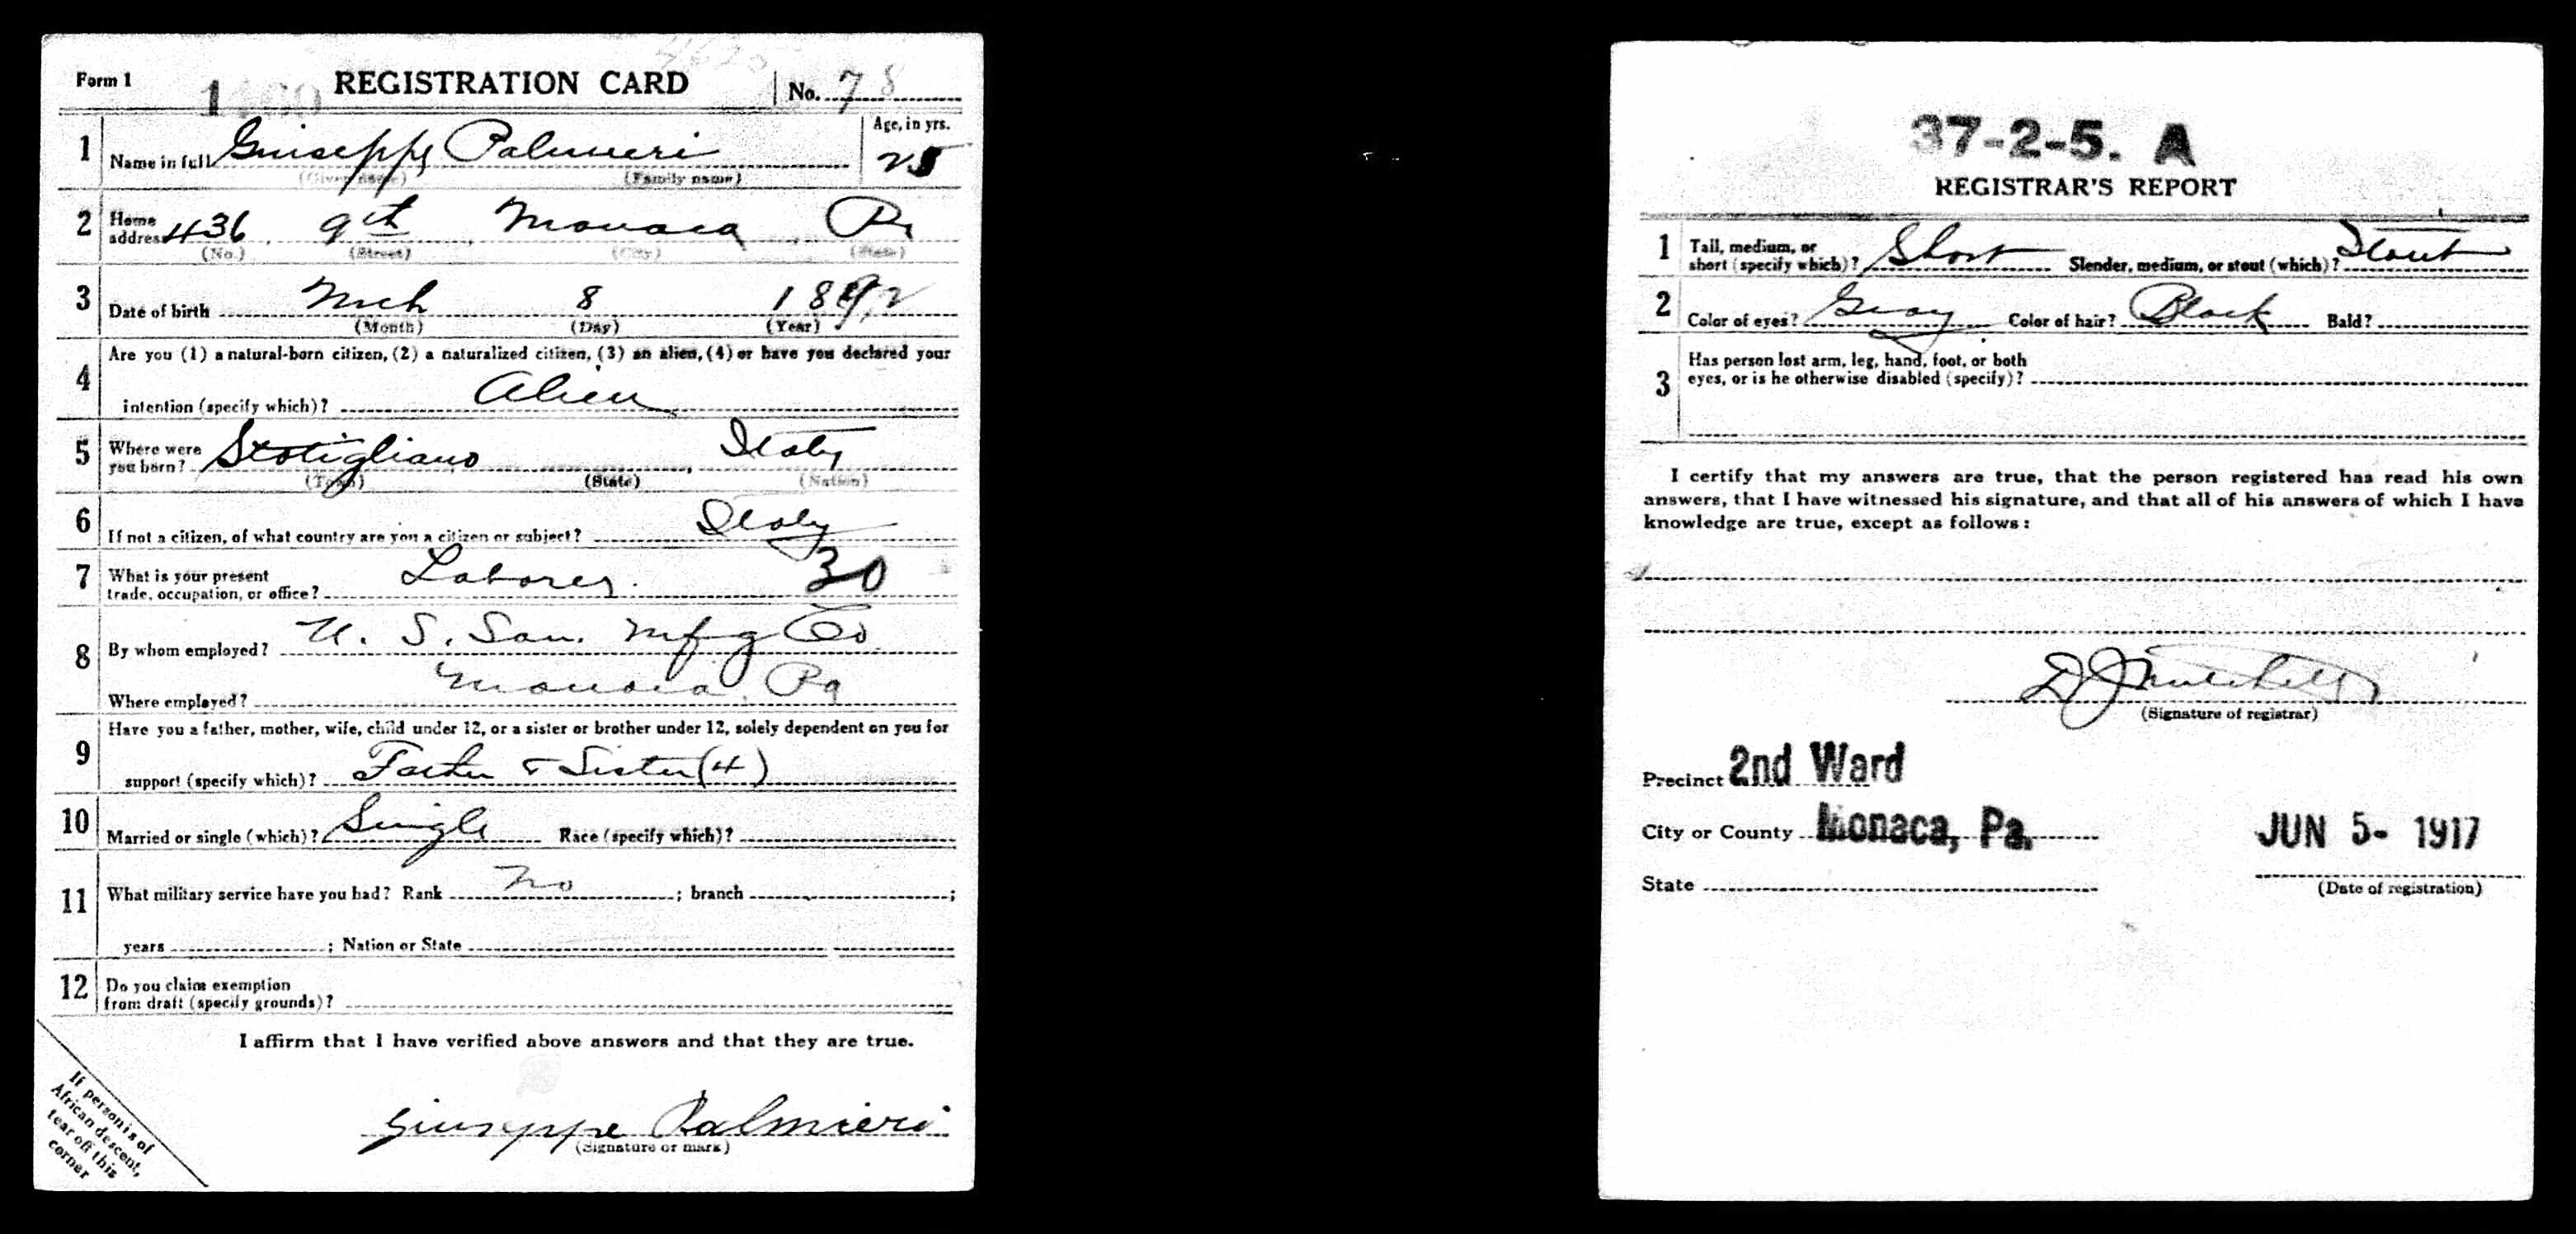 Form 1 REGISTRATION CARD No. 78
1 Name in full Giuseppe Palmieri Age, in yrs. 25
(Given name) (Family name)
2 Home address 436 9th Monaca Pa
(No.) (Street) (City) (State)
3 Date of birth Mch 8 1892
(Month) (Day) (Year)
4 Are you (1) a natural-born citizen, (2) a naturalized citizen, (3) an alien, (4) or have you declared your
intention (specify which)? Alien
5 Where were you born? Stotigliano Italy
(Town) (State) (Nation)
6 If not a citizen, of what country are you a citizen or subject? Italy
7 What is your present trade, occupation, or office? Laborer 30
8 By whom employed? U. S. San. Mfg Co.
Where employed? Monaca Pa
9 Have you a father, mother, wife, child under 12, or a sister or brother under 12, solely dependent on you for
support (specify which)? Father & Sister (4)
10 Married or single (which)? Single Race (specify which)?
11 What military service have you had? Rank no ; branch ;
years ; Nation or State
12 Do you claim exemption
from draft (specify grounds)?
I affirm that I have verified above answers and that they are true.
Giuseppe Palmieri
(Signature or mark)
If person is of
African descent,
tear off this
corner
37-2-5. A
REGISTRAR'S REPORT
1 Tall, medium, or short (specify which)? Short Slender, medium, or stout (which)? Stout
2 Color of eyes? Gray Color of hair? Black Bald?
3 Has person lost arm, leg, hand, foot, or both
eyes, or is he otherwise disabled (specify)?
I certify that my answers are true, that the person registered has read his own
answers, that I have witnessed his signature, and that all of his answers of which I have
knowledge are true, except as follows:
(Signature of registrar)
Precinct 2nd Ward
City or County Monaca, Pa. JUN 5- 1917
State (Date of registration)